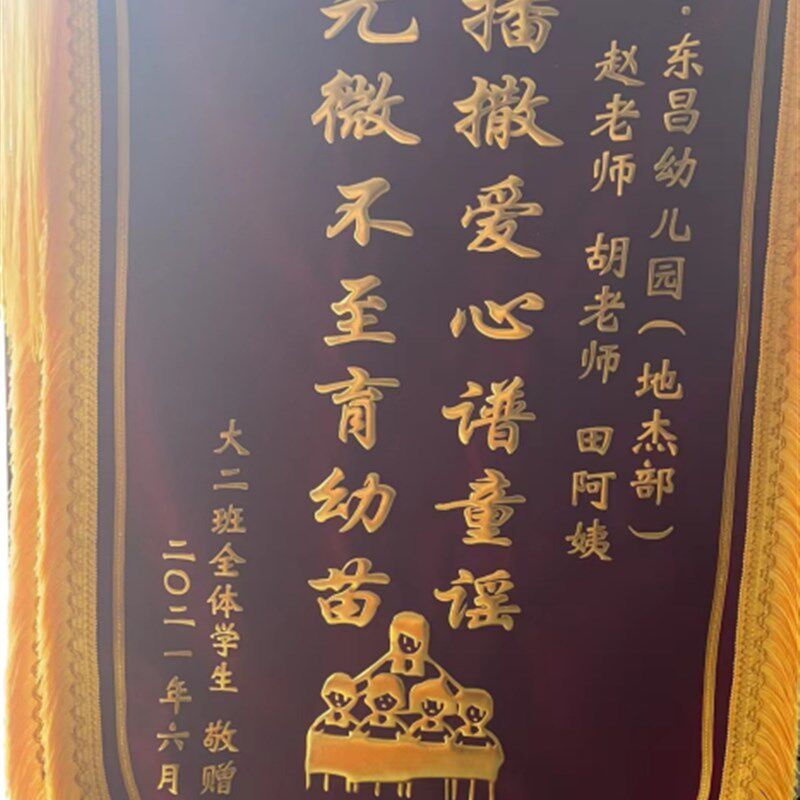 ·东昌幼儿园(地杰部)
赵老师 胡老师 田阿姨
播撒爱心谱童谣
无微不至育幼苗
大二班全体学生 敬赠
二〇二一年六月